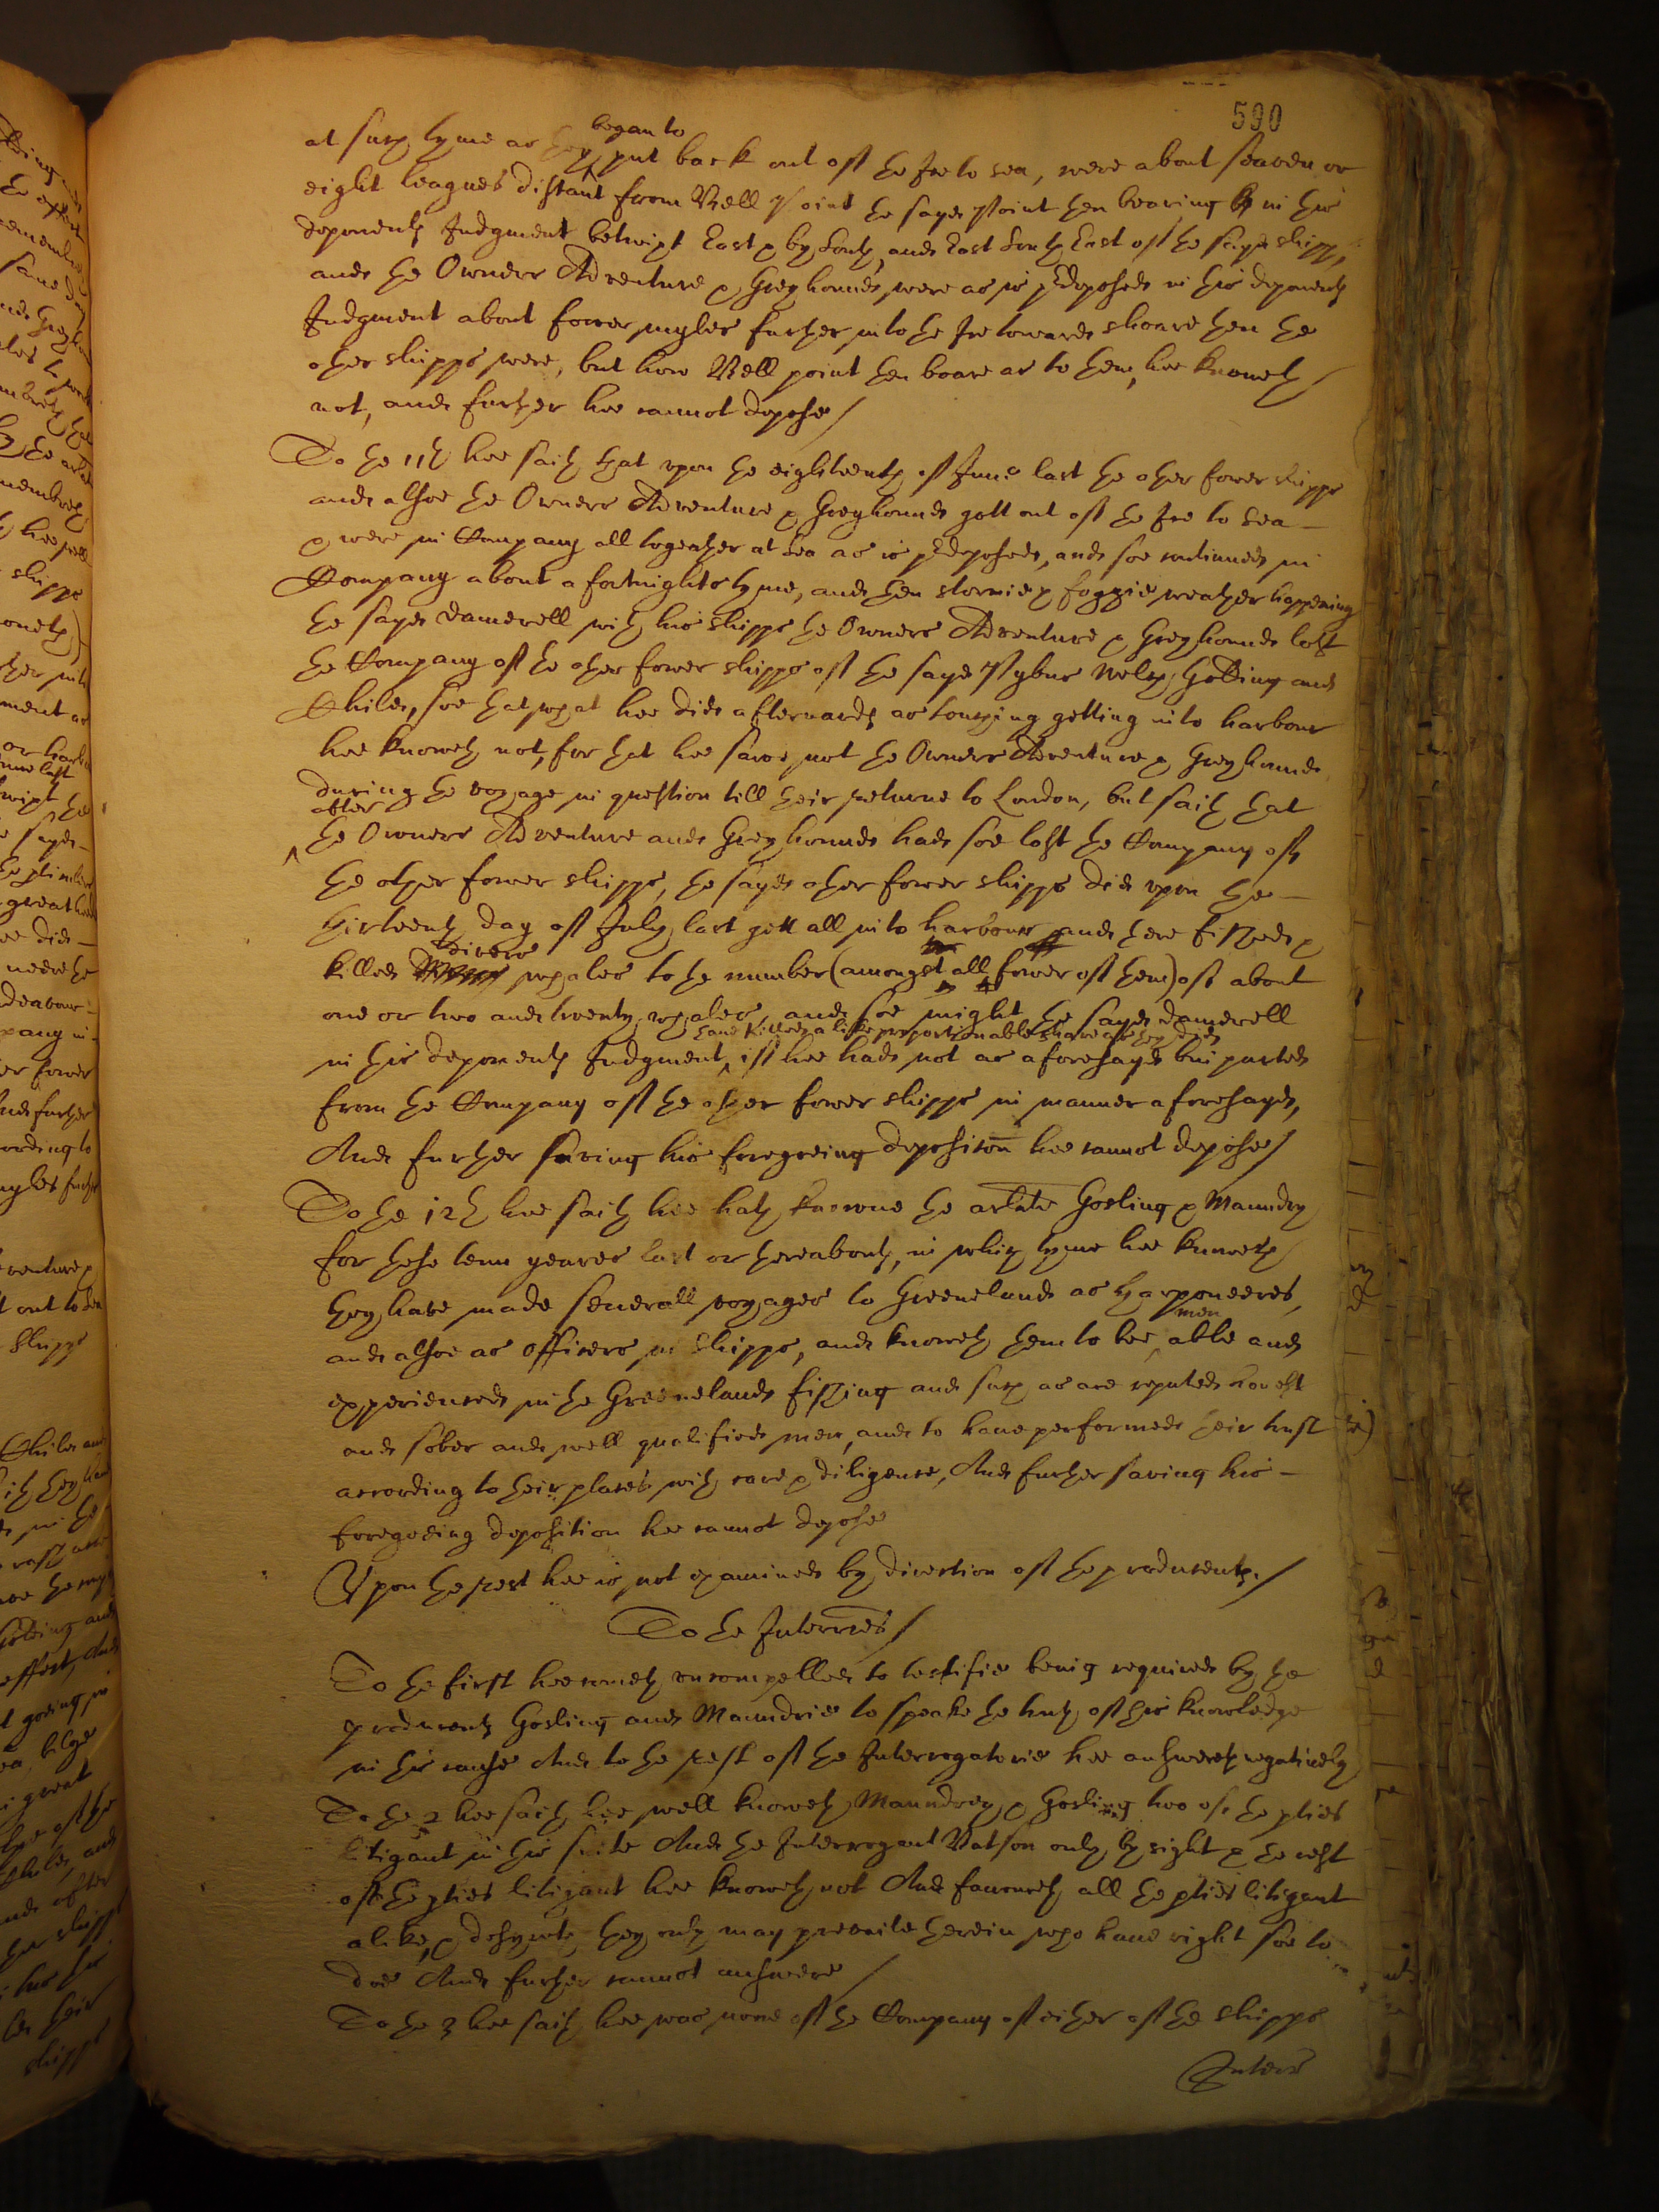 590
at such tyme as they began to put back out of the Ice to sea, were about seaven or
eight leagues distant from Bell Point the sayd Point then bearing in this
deponents Judgment betwixt East & by South, and East South East of the sayd shipps,
and the Owners Adventure & Greyhound were as is predeposed in this deponents
Judgment about fower myles further into the Ice towards shoare then the
other shipps were, but how Bell point then boare as to them, hee knoweth
not, and further hee cannot depose/
To the 11th hee saith that upon the eighteenth of June last the other fower shipps
and alsoe the Owners Adventure & Greyhound gott out of the Ice to sea -
& were in Company all togeather at Sea as is predeposed, and soe continued in
Company about a fortnights tyme, and then stormie & foggie weather happening
the sayd Damerell with his shipps the Owners Adventure & Greyhound lost
the Company of the other fower shipps of the sayd Pybus Welch, Golding and
Childe, soe that what hee did afterwards as touching getting into harbour
hee knoweth not, for that hee sawe not the Owners Adventure & Greyhound
during the voyage in question till their returne to London, but saith that
after the Owners Adventure and Greyhound had soe lost the Company of
the other fower shipps, the sayd other fower shipps did upon the -
thirteenth day of July last gett all into harbour and there fished &
killed divers whales to the number (amongst all fower of them) of about
one or two and twenty whales, and soe might the sayd Damerell
in this deponents Judgment, have killed a like proportionable share as they did, if hee had not as aforesayd bin parted
from the Company of the other fower shipps in manner aforesayd,
And further saving his foregoeing deposition hee cannot depose/
To the 12th hee saith hee hath knowne the arlate Gosling & Maundry
for these tenn yeares last or thereabouts, in which tyme hee knoweth
they have made severall voyages to Greeneland as Harponeeres,
and alsoe as Officers in shipps, and knoweth them to bee able men and
experienced in the Greeneland fishing and such as are reputed honest
and sober and well qualified men, and to have performed their trust
according to their places with care & diligence, And further saving his -
foregoeing deposition hee cannot depose
Upon the rest hee is not examined by direction of the producents./
To the Interries/
To the first hee cometh uncompelled to testifie being required by the
producents Gosling and Maundrie to speake the truth of his knowledge
in this cause And to the rest of the Interrogatorie hee answereth negatively
To the 2 hee saith hee well knoweth Maundrey & Gosling two of the pties
litigant in this suite And the Interrogant Batson only by sight & the rest
of the pties litigant hee knoweth not And favoureth all the pties litigant
alike, & desyreth they only may prevaile herein who have right soe to
doe And further cannot answere/
To the 3 hee saith hee was none of the Company of either of the shipps
Interr